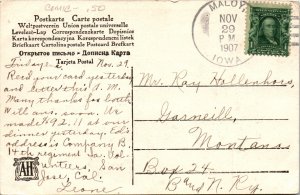 Comic - .50
Postkarte Carte postale
Weltpostverein Union postale universelle
Levelező-Lap Correspondenzkarte Dopisnice
Karta korespondencyjna Korespondenční lístek
Briefkaart Cartolina postale Postcard Brefkort
Открытое письмо - Дописна Карта
Tarjeta Postal
MALOY
NOV
29
P M
1907
IOWA
Friday eve. Nov. 29.
Recd your card yesterday
and letter this A.M.
Many thanks for both
Will ans. soon. We
made $42.11 at our
dinner yesterday. Ed's
address is Company B,
14th regiment Ia. Vol-
unteers, San
Jose, Cal.
Leone
Mr. Ray Hallenhors,
Garneill,
Montana
Box 24.
Burns N. Ry.
AH